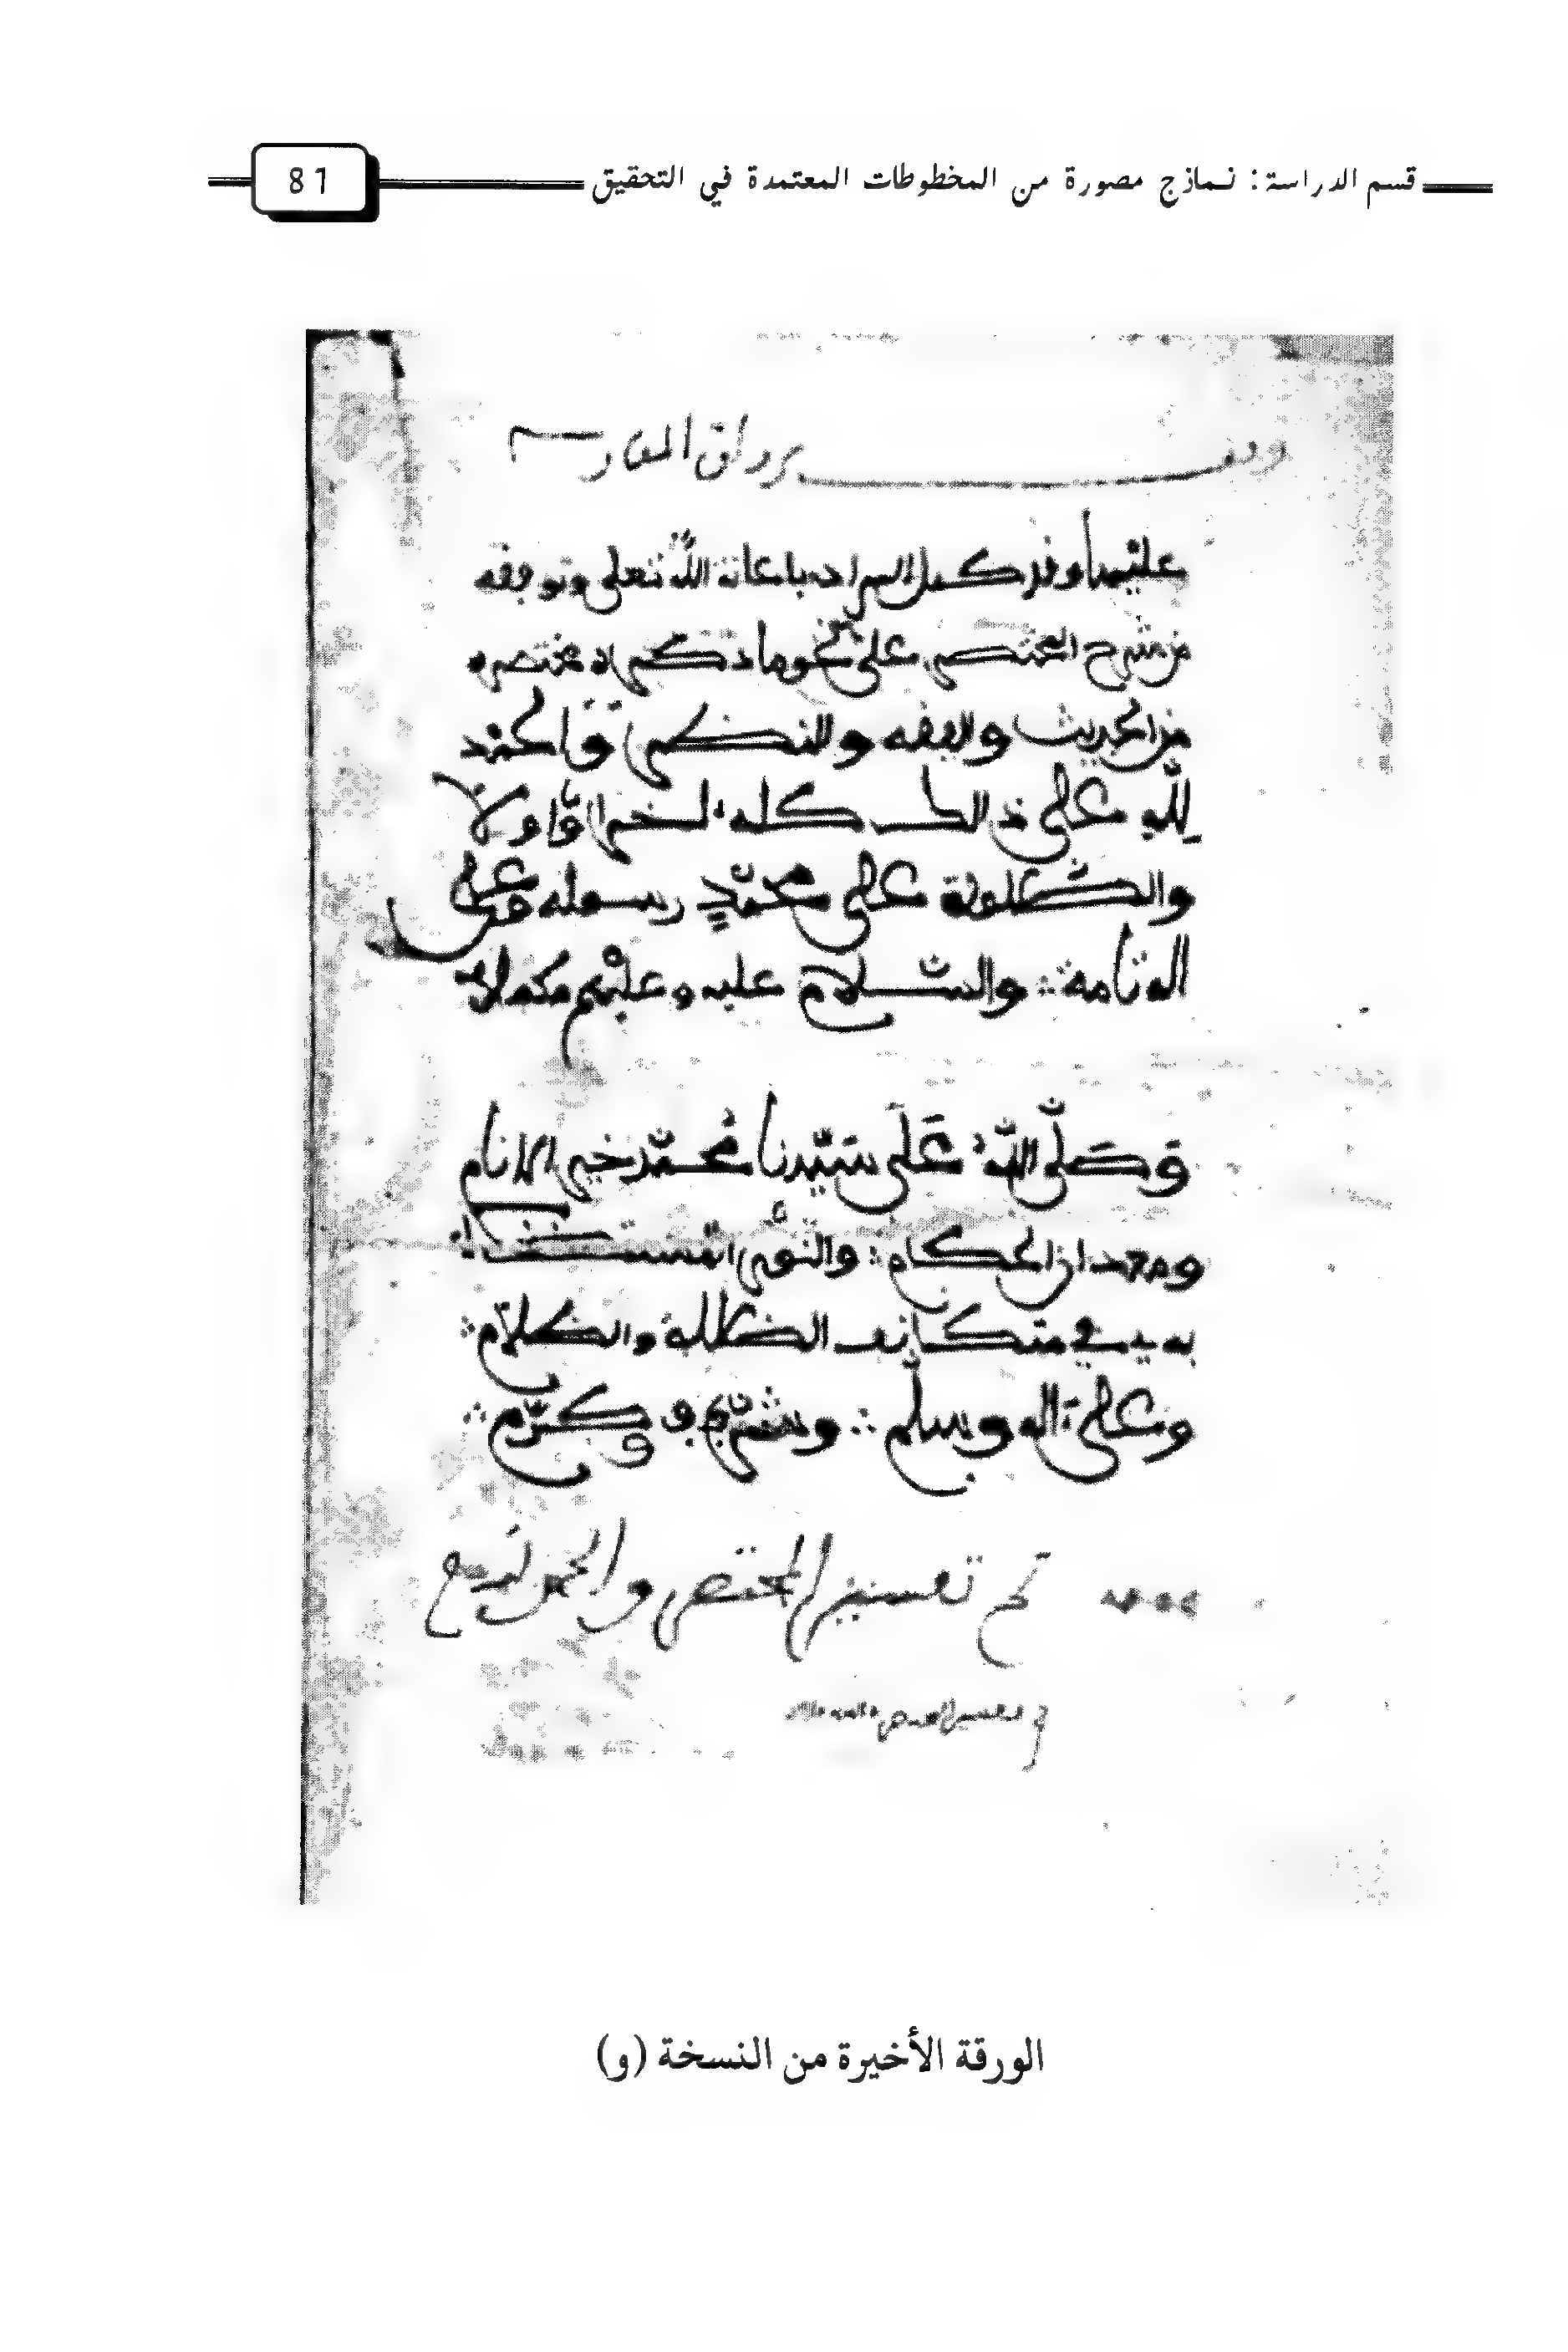 قسم الدراسة: نماذج مصورة من المخطوطات المعتمدة في التحقيق
81
وقف برواق المغاربة
عليهما وقد كمل المراد باعانة الله تعلى وتوفيقه
من شرح المختصر على نحو ما ذكره في مختصره
من الحديث والفقه والنظر والحمد
لله على ذالك كله اخرا واولا
والصلوة على محمد رسوله وعلى
اله تامة والسلام عليه وعليهم مكملا
وصلى الله على سيدنا محمد خير الانام
ومعدن الحكام والنور المستضاء
به في متكاثف الظلمة والظلام
وعلى اله وسلم وشرف وكرم
تم تفسير المختصر والحمد لله
تم تفسير المختصر
الورقة الأخيرة من النسخة (و)